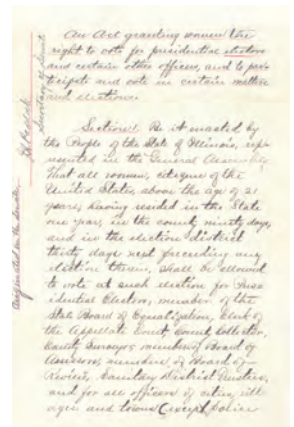 An Act granting women the
right to vote for presidential electors
and certain other officers, and to par-
ticipate and vote in certain matters
and elections.
Section 1. Be it enacted by
the People of the State of Illinois, rep-
resented in the General Assembly:
That all women, citizens of the
United States, above the age of 21
years, having resided in the State
one year, in the county ninety days,
and in the election district
thirty days next preceding any
election therein, shall be allowed
to vote at such election for Pres-
idential Electors, member of the
State Board of Equalization, Clerk of
the Appellate Court, County Collector,
County Surveyor, members of Board of
Assessors, members of Board of
Review, Sanitary District Trustees,
and for all officers of cities, vill-
ages and towns (except police
Originated in the Senate
Secretary of Senate